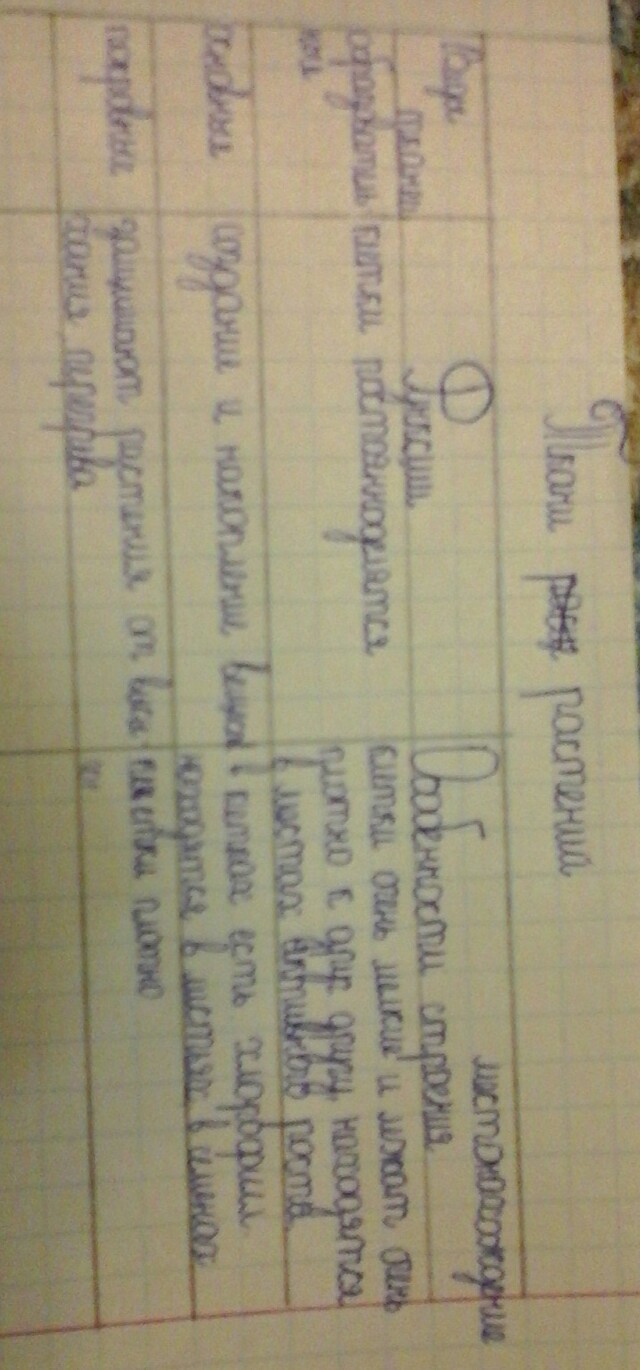 Ткани растений
Виды тканей
Функции
Особенности строения
местонахождение
образователь
ная
клетки постоянно делятся
клетки очень мелкие и лежат очень
плотно к друг другу находятся
в местах активного роста
основная
создание и накопление вещест
в клетках есть хлорофилл
находятся в листьях в семенах
покровная
защищают растения от высы-
хания перегрева
клетки плотно